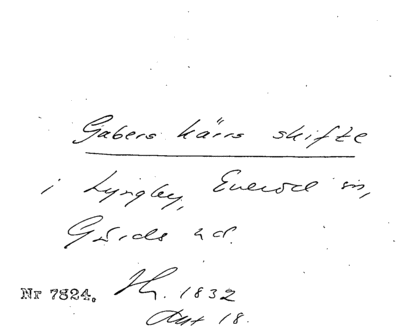 Gabers kärrs skifte
i Lyngby, Everöd sn,
Gärds hd.
Nr 7824. 1832
18.